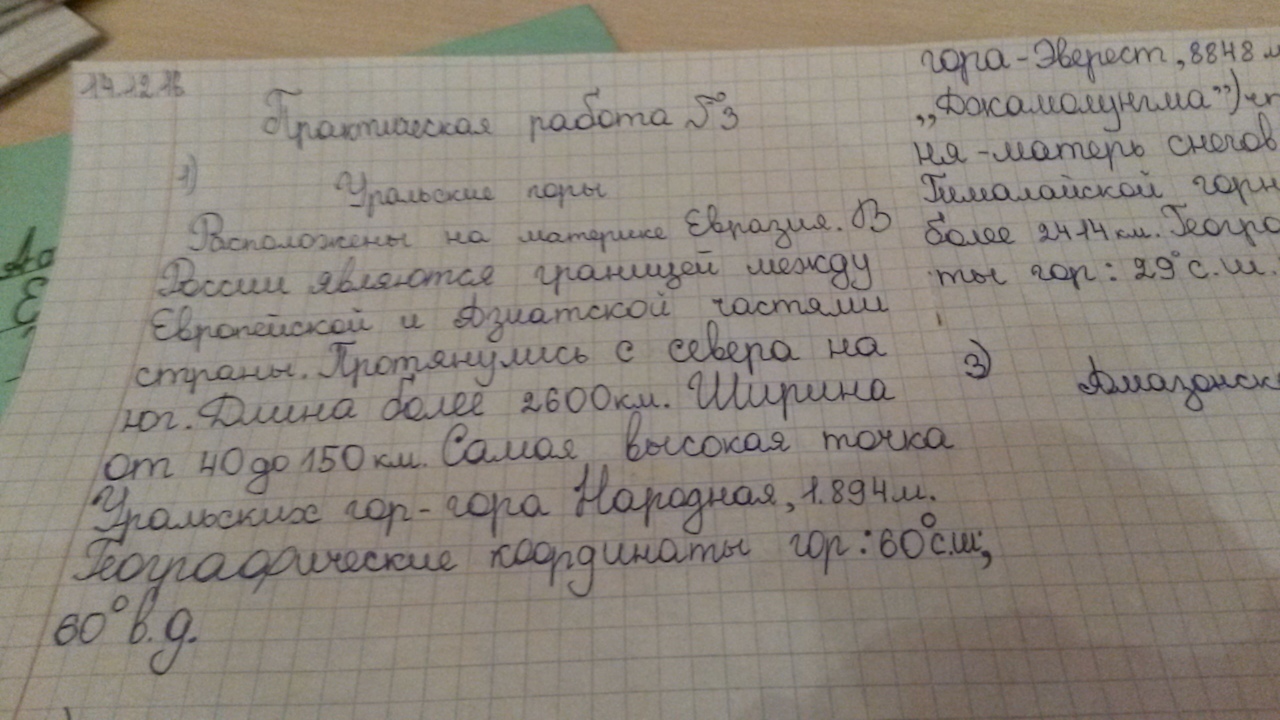 14.12.16
Практическая работа №3
1) Уральские горы
Расположены на материке Евразия. В
России являются границей между
Европейской и Азиатской частями
страны. Протянулись с севера на
юг. Длина более 2600км. Ширина
от 40 до 150 км. Самая высокая точка
Уральских гор - гора Народная, 1.894м.
Географические координаты гор: 60° с.ш;
60° в.д.
гора - Эверест, 8848 м
„Джамолунгма”)
ня - матерь снегов
Гималайской горн
более 2414 км. Геогра
ты гор: 29° с.ш.
3) Амазонск